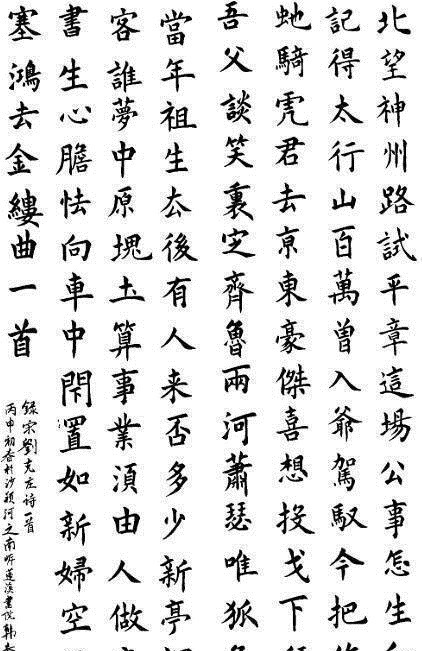 北望神州路試平章這場公事怎生
記得太行山百萬曾入爺駕馭今把
虵騎虎君去亰東豪傑喜想投戈下
吾父談笑裏定齊魯兩河蕭瑟唯狐
當年祖生厺後有人来否多少新亭
客誰夢中原塊土算事業湏由人做
書生心膽怯向車中閇置如新婦空
塞鴻去金縷曲一首
錄宋劉克庄诗一首
丙申初春於沙颍河之南岸蓮溪書院韓